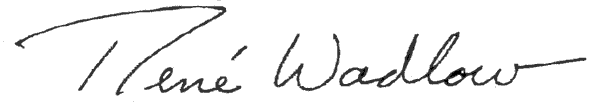 René Wadlow